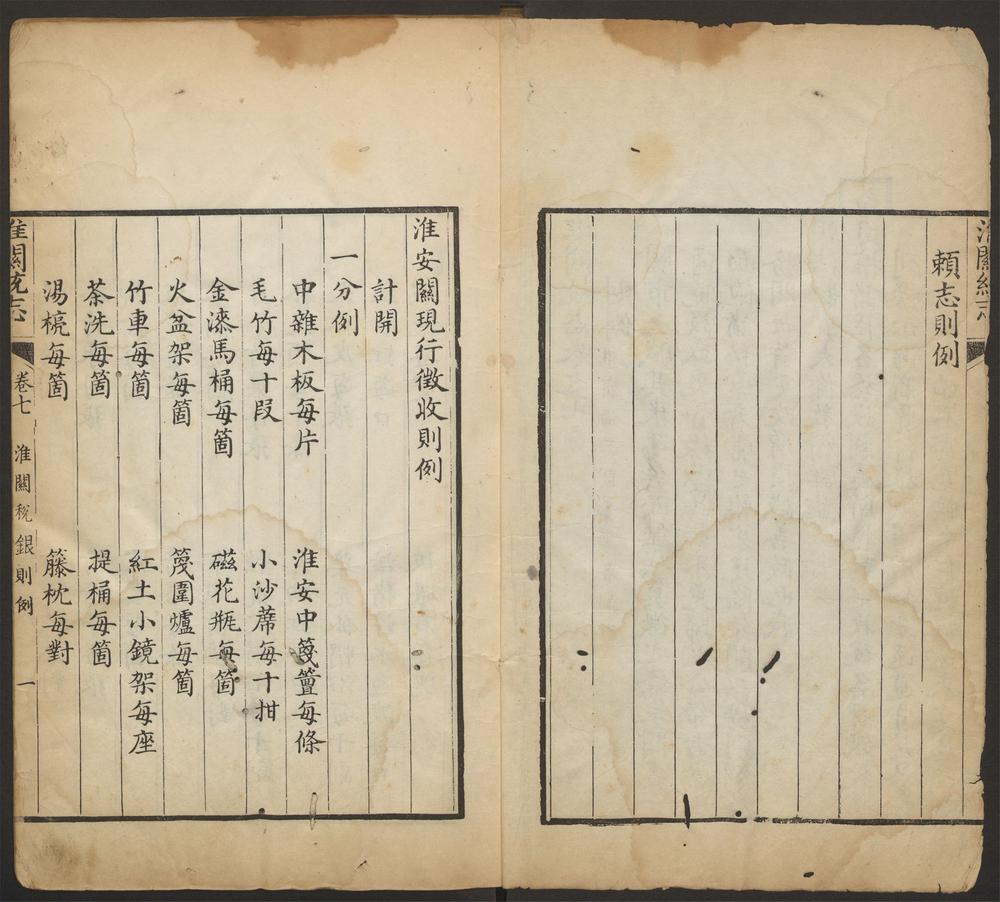 淮關統志
賴志則例
淮安關現行徵收則例
計開
一分例
中雜木板每片　淮安中篾簟每條
毛竹每十段　小沙蓆每十拑
金漆馬桶每箇　磁花瓶每箇
火盆架每箇　篾圍爐每箇
竹車每箇　紅土小鏡架每座
茶洗每箇　提桶每箇
湯梡每箇　籐枕每對
淮關統志　卷七　淮關稅銀則例　一